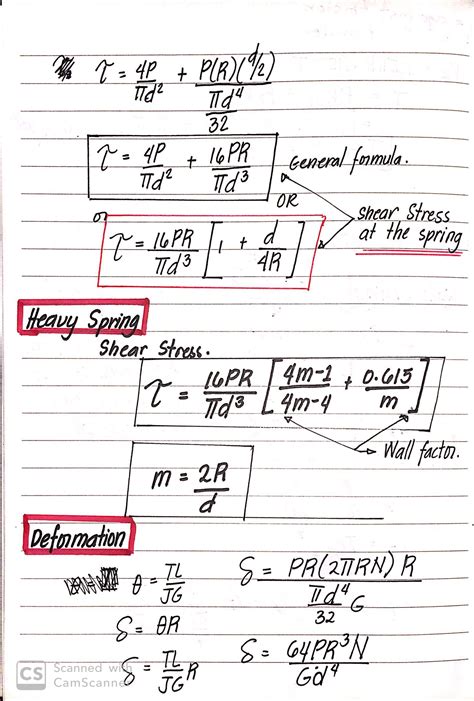 τ = 4P/πd² + P(R)(d/2)/(πd⁴/32)
τ = 4P/πd² + 16PR/πd³
General formula.
OR
or
τ = 16PR/πd³ [1 + d/4R]
Shear Stress
at the spring
Heavy Spring
Shear Stress.
τ = 16PR/πd³ [4m-1/4m-4 + 0.615/m]
Wall factor.
m = 2R/d
Deformation
θ = TL/JG
δ = PR(2πRN) R/(πd⁴/32 G)
δ = θR
δ = TL/JG R
δ = 64PR³N/Gd⁴
CS Scanned with
CamScanne